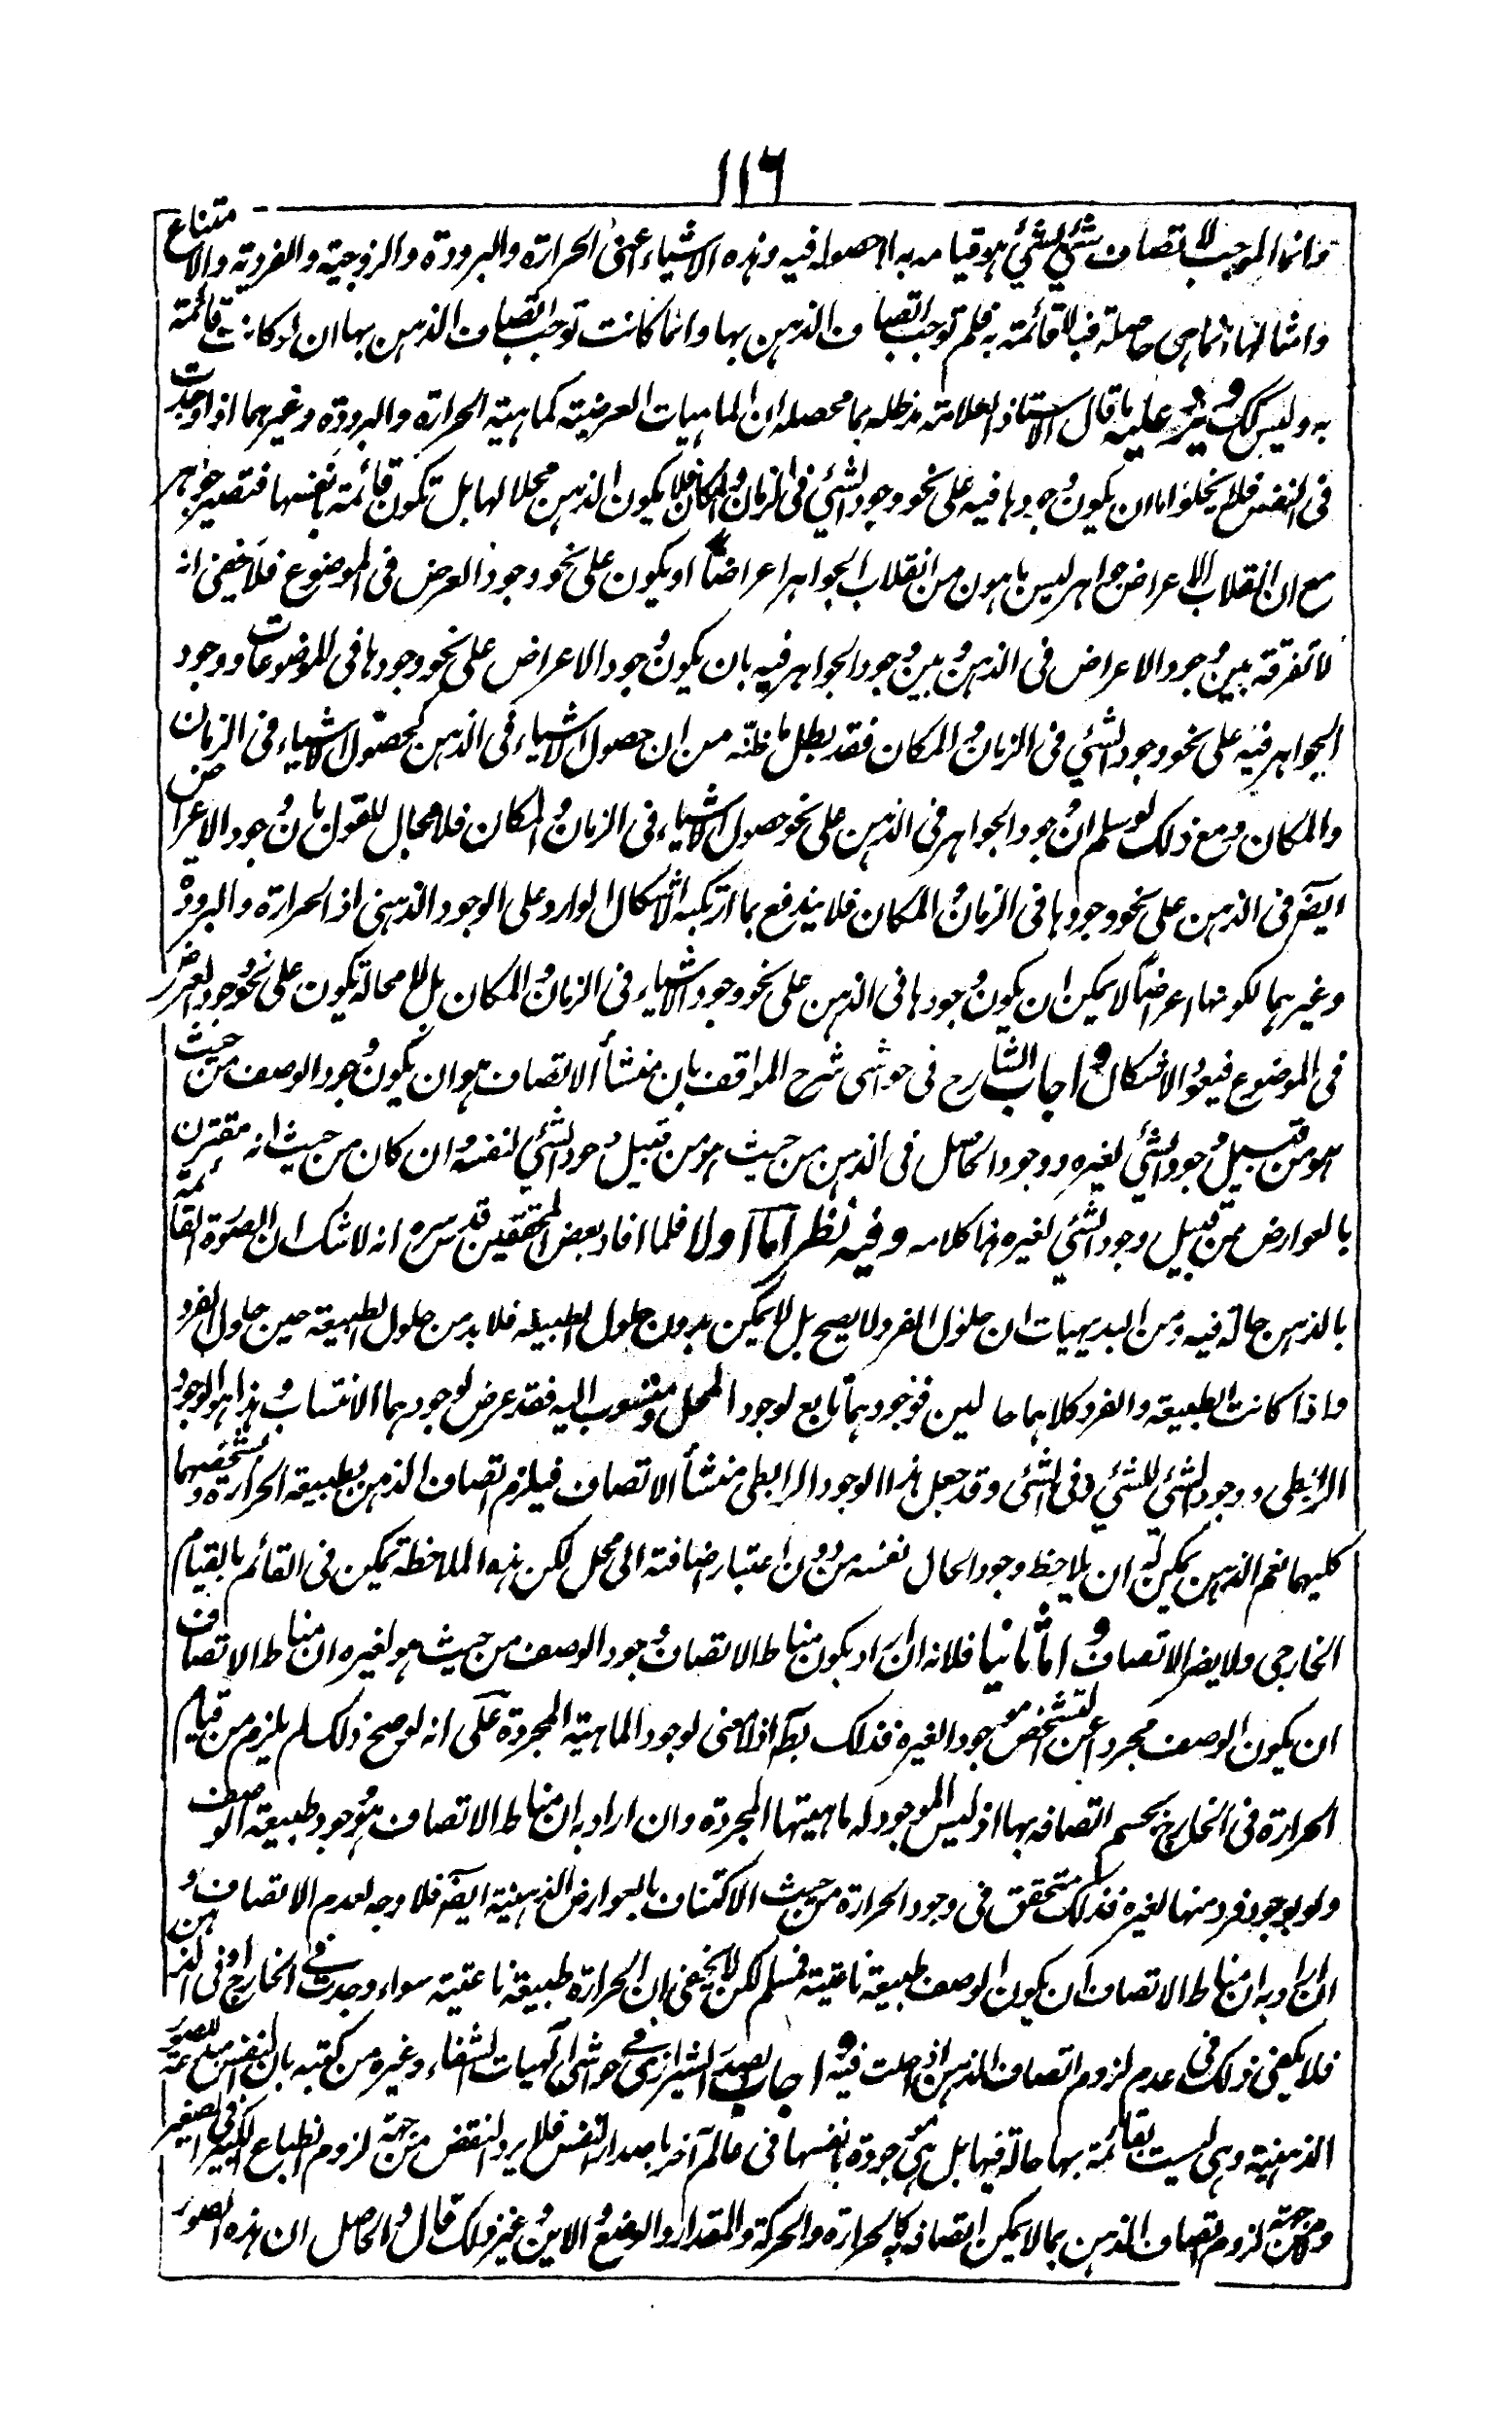 ١١٦
وانما الموجب لاتصاف شئ بشئ هو قيامه به لا حصوله فيه وهذه الاشياء اعنى الحرارة والبرودة والزوجية والفردية والامتناع
وامثالها انما هى حاصلة فيه لا قائمة به فلم توجب اتصاف الذهن بها وانما كانت توجب اتصاف الذهن بها ان لو كانت قائمة
به وليس كك ويرد عليه ما قال الاستاذ العلامة مدظله بما محصله ان الماهيات العرضية كماهية الحرارة والبرودة وغيرهما اذا وجدت
فى النفس فلا يخلو اما ان يكون وجودها فيه على نحو وجود الشئ فى الزمان والمكان فلا يكون الذهن محلا لها بل تكون قائمة بانفسها فتصير جواهر
مع ان انقلاب الاعراض جواهر ليس باهون من انقلاب الجواهر اعراضا او يكون على نحو وجود العرض فى الموضوع فلا خفى انه
لا تفرقة بين وجود الاعراض فى الذهن وبين وجود الجواهر فيه بان يكون وجود الاعراض على نحو وجودها فى الموضوعات ووجود
الجواهر فيه على نحو وجود الشئ فى الزمان والمكان فقد بطل ما ظنه من ان حصول الاشياء فى الذهن كحصول الاشياء فى الزمان
والمكان ومع ذلك لو سلم ان وجود الجواهر فى الذهن على نحو حصول الاشياء فى الزمان والمكان فلا مجال للقول بان وجود الاعراض
ايضا فى الذهن على نحو وجودها فى الزمان والمكان فلا يندفع بما ارتكبه الاشكال الوارد على الوجود الذهنى اذ الحرارة والبرودة
وغيرهما لكونها اعراضا لا يمكن ان يكون وجودها فى الذهن على نحو وجود الاشياء فى الزمان والمكان بل لا محالة يكون على نحو وجود العرض
فى الموضوع فيعود الاشكال واجاب الشارح فى حواشى شرح المواقف بان منشأ الاتصاف هو ان يكون وجود الوصف من حيث
هو من قبيل وجود الشئ لغيره ووجود الحاصل فى الذهن من حيث هو من قبيل وجود الشئ لنفسه وان كان من حيث انه مقترن
بالعوارض من قبيل وجود الشئ لغيره هذا كلامه وفيه نظر اما اولا فلما افاد بعض المحققين قدس سره انه لا شك ان الصورة القائمة
بالذهن حالة فيه ومن البديهيات ان حلول الفرد لا يصح بل لا يمكن بدون حلول الطبيعة فلا بد من حلول الطبيعة حين حلول الفرد
واذا كانت الطبيعة والفرد كلاهما حالين فوجودهما تابع لوجود المحل ومنسوب اليه فقد عرض لوجودهما الانتساب وهذا هو الوجود
الرابطى ووجود الشئ للشئ وفى الشئ وقد جعل هذا الوجود الرابطى منشأ الاتصاف فيلزم اتصاف الذهن بطبيعة الحرارة وشخصها
كليهما نعم الذهن يمكن له ان يلاحظ وجود الحال نفسه من دون اعتبار اضافته الى محل لكن هذه الملاحظة تمكن فى القائم بالقيام
الخارجى ولا يضر الاتصاف واما ثانيا فلانه ان اراد بكون مناط الاتصاف وجود الوصف من حيث هو لغيره ان مناط الاتصاف
ان يكون الوصف مجردا عن التشخص موجود الغيره فذلك بط اذ لا معنى لوجود الماهية المجردة على انه لو صح ذلك لم يلزم من قيام
الحرارة فى الخارج بجسم اتصافه بها اذ ليس الموجود له ماهيتها المجردة وان اراد به ان مناط الاتصاف هو وجود طبيعة الوصف
ولو بوجود فرد منها لغيره فذلك متحقق فى وجود الحرارة من حيث الاكتناف بالعوارض الذهنية ايضا فلا وجه لعدم الاتصاف و
ان اراد به ان مناط الاتصاف ان يكون الوصف طبيعة ناعتية فمسلم لكن لا يخفى ان الحرارة طبيعة ناعتية سواء وجدت فى الخارج او فى الذهن
فلا يكفى ذلك فى عدم لزوم اتصاف الذهن اذا حلت فيه واجاب الصدر الشيرازى فى حواشى الٰهيات الشفاء وغيره من كتبه بان النفس مبدعة للصور
الذهنية وهى ليست بقائمة بها حالة فيها بل هى موجودة بانفسها فى عالم آخر باصدار النفس فلا يرد النقض من جهة لزوم انطباع الكبير فى الصغير
ولا من جهة لزوم اتصاف الذهن بما لا يمكن اتصافه به كالحرارة والحركة والمقدار والوضع والاين وغير ذلك قال والحاصل ان هذه الصور